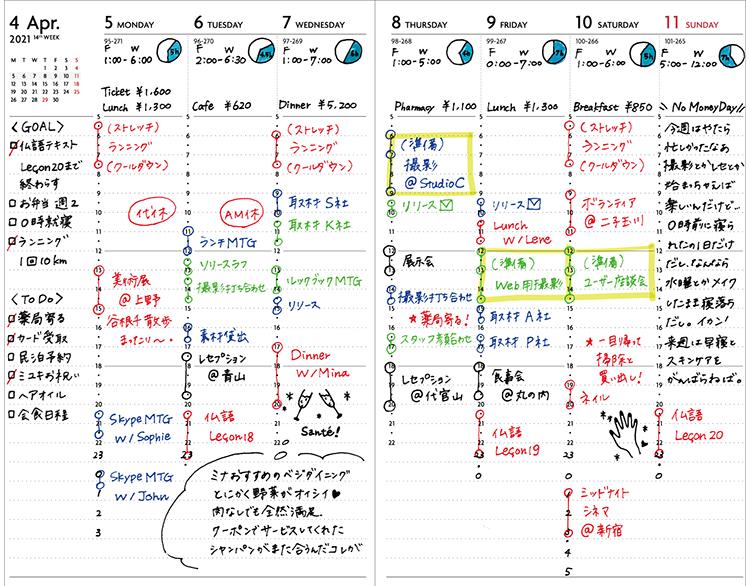 4 Apr.
2021 14th WEEK
M T W T F S S
1 2 3 4
5 6 7 8 9 10 11
12 13 14 15 16 17 18
19 20 21 22 23 24 25
26 27 28 29 30
<GOAL>
仏語テキスト
Leçon20まで
終わらす
お弁当 週2
0時就寝
ランニング
1回10km
<To Do>
薬局寄る
カード受取
民泊予約
ミユキお祝い
ヘアオイル
会食日程
5 MONDAY
95-271
F W
1:00-6:00
5h
Ticket ¥1,600
Lunch ¥1,300
(ストレッチ)
ランニング
(クールダウン)
代休
美術展
@上野
谷根千散歩
まったり〜・
Skype MTG
w/Sophie
Skype MTG
w/John
6 TUESDAY
96-270
F W
2:00-6:30
4.5h
Cafe ¥620
AM休
ランチMTG
ソリースラフ
撮影打ち合わせ
素材貸出
レセプション
@青山
仏語
Leçon18
7 WEDNESDAY
97-269
F W
1:00-7:00
6h
Dinner ¥5,200
(ストレッチ)
ランニング
(クールダウン)
取材 S社
取材 K社
ルックブックMTG
リリース
Dinner
w/Mina
Santé!
ミナおすすめのベジダイニング
とにかく野菜がオイシイ♥
肉なしでも全然満足.
クーポンでサービスしてくれた
シャンパンがまた合うんだコレが
8 THURSDAY
98-268
F W
1:00-5:00
Pharmacy ¥1,100
(準備)
撮影
@StudioC
リリース
展示会
撮影打ち合わせ
★薬局寄る!
スタッフ顔合わせ
レセプション
@代官山
9 FRIDAY
99-267
F W
0:00-7:00
7h
Lunch ¥1,300
リリース
Lunch
w/Lene
(準備)
Web用撮影
取材 A社
取材 P社
食事会
@丸の内
仏語
Leçon19
10 SATURDAY
100-266
F W
1:00-6:00
5h
Breakfast ¥850
(ストレッチ)
ランニング
(クールダウン)
ボランティア
@二子玉川
(準備)
ユーザー座談会
★一旦帰って
掃除と
買い出し!
ネイル
ミッドナイト
シネマ
@新宿
11 SUNDAY
101-265
F W
5:00-12:00
7h
\\No Money Day//
今週はやたら
忙しかったなあ
撮影とかしてとか
始まっちゃえば
楽しいんだけど…
0時前に寝ら
れたの1日だけ
だし。なんなら
水曜とかメイク
したまま寝落ち
だし。イカン!
来週は早寝と
スキンケアを
がんばらねば。
仏語
Leçon 20